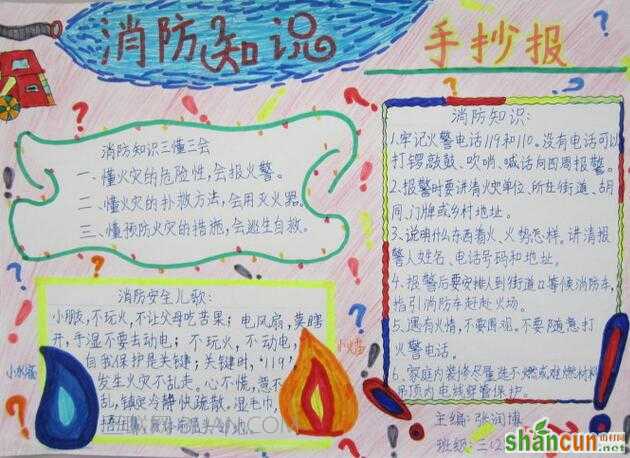 消防知识
手抄报
消防知识三懂三会
一、懂火灾的危险性,会报火警。
二、懂火灾的扑救方法,会用灭火器。
三、懂预防火灾的措施,会逃生自救。
消防安全儿歌:
小朋友,不玩火,不让父母吃苦果;电风扇,莫瞎
开,手湿不要去动电;不玩火,不动电,
自我保护是关键;关键时,"119",
发生火灾不乱走。心不慌,意不
乱,镇定冷静快疏散,湿毛巾,
小水滴
小火苗
消防知识:
1.牢记火警电话119和110。没有电话可以
打锣敲鼓、吹哨、喊话向四周报警。
2.报警时要讲清火灾单位、所在街道、胡
同、门牌或乡村地址。
3、说明什么东西着火、火势怎样。讲清报
警人姓名、电话号码和地址。
4、报警后要安排人到街道口等候消防车,
指引消防车赶赴火场。
5、遇有火情,不要围观。不要随意打
火警电话。
6、家庭内装修尽量选不燃或难燃材料,
吊顶内电线穿管保护。
主编:张润博
班级:三
shancun.net